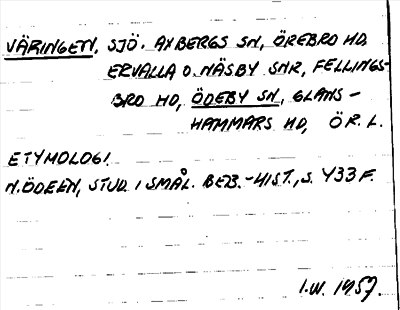 VÄRINGEN, SJÖ. AXBERGS SN, ÖREBRO HD,
ERVALLA O. NÄSBY SNR, FELLINGS-
BRO HD, ÖDEBY SN, GLANS-
HAMMARS HD, ÖR. L.
ETYMOLOGI
N. ÖDEEN, STUD. I SMÅL. BEB.-HIST., S. 433 F.
I.W. 1957.